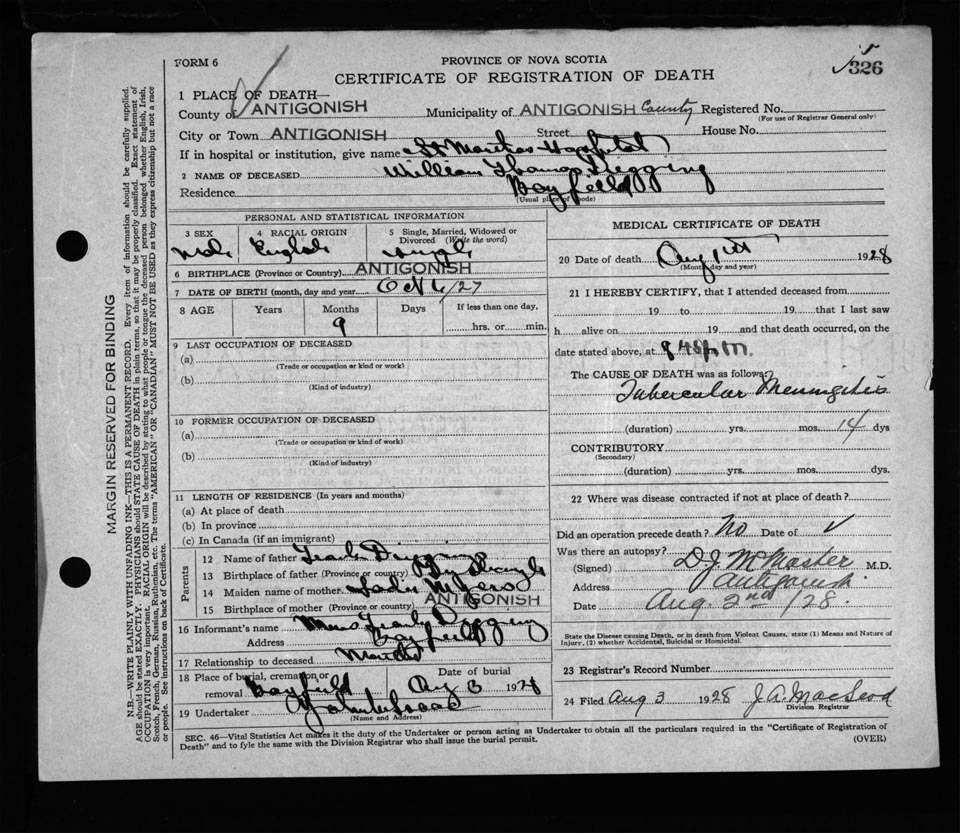 FORM 6
PROVINCE OF NOVA SCOTIA
CERTIFICATE OF REGISTRATION OF DEATH
326
1 PLACE OF DEATH—
County of ANTIGONISH Municipality of ANTIGONISH County Registered No.
(For use of Registrar General only)
City or Town ANTIGONISH Street House No.
If in hospital or institution, give name St Marthas Hospital
2 NAME OF DECEASED William Thomas
Residence Bayfield
(Usual place of abode)
PERSONAL AND STATISTICAL INFORMATION
3 SEX
Male
4 RACIAL ORIGIN
English
5 Single, Married, Widowed or Divorced (Write the word)
Single
6 BIRTHPLACE (Province or Country) ANTIGONISH
7 DATE OF BIRTH (month, day and year) Oct 6/27
8 AGE Years Months Days If less than one day,
9
hrs. or min.
9 LAST OCCUPATION OF DECEASED
(a)
(Trade or occupation or kind or work)
(b)
(Kind of industry)
10 FORMER OCCUPATION OF DECEASED
(a)
(Trade or occupation or kind of work)
(b)
(Kind of industry)
11 LENGTH OF RESIDENCE (In years and months)
(a) At place of death
(b) In province
(c) In Canada (if an immigrant)
Parents
12 Name of father
13 Birthplace of father (Province or country)
14 Maiden name of mother Sadie Myers
15 Birthplace of mother (Province or country) ANTIGONISH
16 Informant's name Mrs
Address Bayfield
17 Relationship to deceased Mother
18 Place of burial, cremation or Date of burial
removal Bayfield Aug 3 1928
19 Undertaker
(Name and Address)
MEDICAL CERTIFICATE OF DEATH
20 Date of death Aug 1st 1928
(Month, day and year)
21 I HEREBY CERTIFY, that I attended deceased from
19 to 19 that I last saw
h alive on 19 and that death occurred, on the
date stated above, at 8 45 p m.
The CAUSE OF DEATH was as follows:
Tubercular Meningitis
(duration) yrs. mos. 14 dys
CONTRIBUTORY
(Secondary)
(duration) yrs. mos. dys.
22 Where was disease contracted if not at place of death?
Did an operation precede death? No Date of
Was there an autopsy?
(Signed) D.J. McMaster M.D.
Address Antigonish
Date Aug. 2nd /28.
State the Disease causing Death, or in death from Violent Causes, state (1) Means and Nature of
Injury, (2) whether Accidental, Suicidal or Homicidal.
23 Registrar's Record Number
24 Filed Aug 3 1928 J.A. MacLeod
Division Registrar
SEC. 46—Vital Statistics Act makes it the duty of the Undertaker or person acting as Undertaker to obtain all the particulars required in the "Certificate of Registration of
Death" and to fyle the same with the Division Registrar who shall issue the burial permit.
(OVER)
MARGIN RESERVED FOR BINDING
N.B.—WRITE PLAINLY WITH UNFADING INK—THIS IS A PERMANENT RECORD. Every item of information should be carefully supplied.
AGE should be stated EXACTLY. PHYSICIANS should STATE CAUSE OF DEATH in plain terms, so that it may be properly classified. Exact statement of
OCCUPATION is very important. RACIAL ORIGIN will be described by stating to what people or tongue the deceased person belonged whether English, Irish,
Scotch, French, German, Russian, Ruthenian, etc. The terms "AMERICAN" or "CANADIAN" MUST NOT BE USED as they express citizenship but not a race
or people. See instructions on back of Certificate.